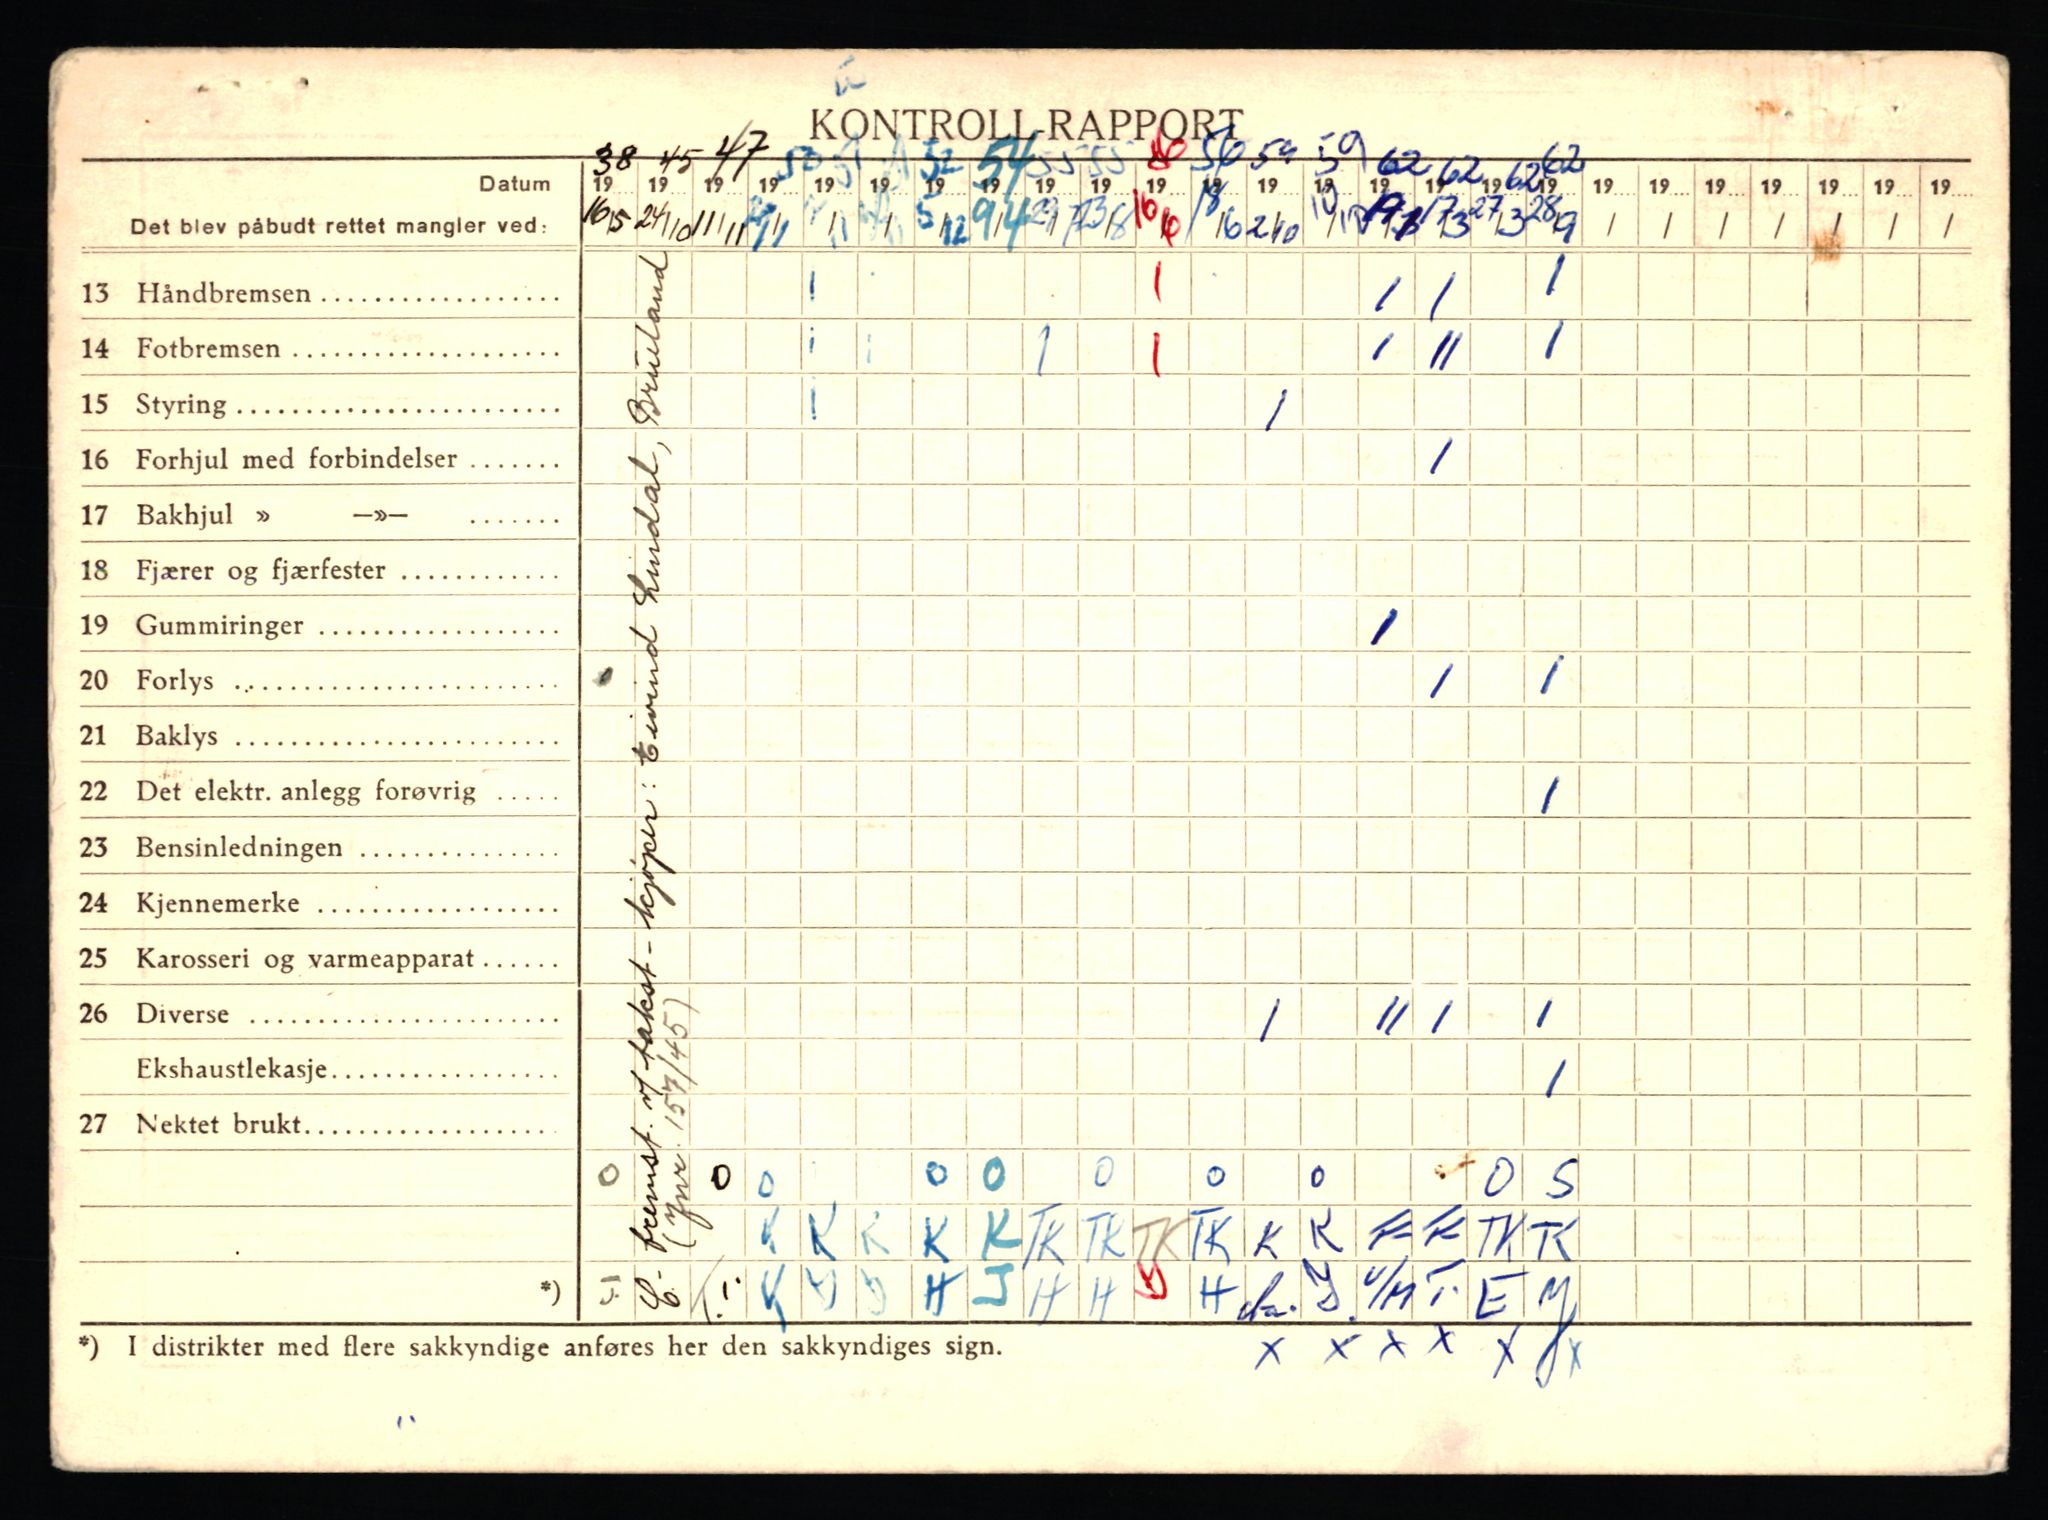 KONTROLL-RAPPORT
38 45 47 52 54 55 55 56 56 59 59 62 62 62 62
Datum 19 19 19 19 19 19 19 19 19 19 19 19 19 19 19 19 19 19 19 19 19 19 19 19 19
Det blev påbudt rettet mangler ved: 16/5 24/10 11/11 5/12 9/4 23/8 16/6 18/6 2/10 17/3 27/3 28/9 / / / / / / /
13 Håndbremsen I I I I I
14 Fotbremsen I I I I I II I
15 Styring I I
16 Forhjul med forbindelser I
17 Bakhjul » —»—
18 Fjærer og fjærfester
19 Gummiringer I
20 Forlys I I
21 Baklys
22 Det elektr. anlegg forøvrig I
23 Bensinledningen
24 Kjennemerke
25 Karosseri og varmeapparat
26 Diverse I II I I
Ekshaustlekasje I
27 Nektet brukt
0 0 0 0 0 0 0 0 0 S
K K K K K TK TK TK TK K K TK TK
*) H J H H H E
x x x x x x
fremst. v/ takst - kjøper: Eivind Lindal, Brueland
(Jnr. 157/45)
*) I distrikter med flere sakkyndige anføres her den sakkyndiges sign.